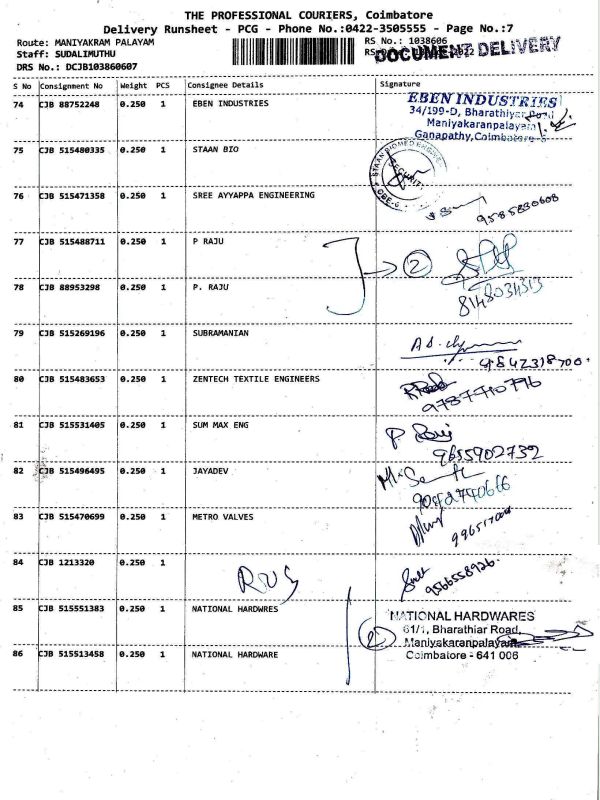 THE PROFESSIONAL COURIERS, Coimbatore
Delivery Runsheet - PCG - Phone No.:0422-3505555 - Page No.:7
Route: MANIYAKRAM PALAYAM
RS No.: 1038606
Staff: SUDALIMUTHU
DOCUMENT DELIVERY
DRS No.: DCJB103860607
S No Consignment No Weight PCS Consignee Details Signature
74 CJB 88752248 0.250 1 EBEN INDUSTRIES
EBEN INDUSTRIES
34/199-D, Bharathiyar Road
Maniyakaranpalayam
Ganapathy, Coimbatore-
75 CJB 515480335 0.250 1 STAAN BIO
SECURITY
CBE-6
76 CJB 515471358 0.250 1 SREE AYYAPPA ENGINEERING
9585830608
77 CJB 515488711 0.250 1 P RAJU
2
78 CJB 88953298 0.250 1 P. RAJU
8148034313
79 CJB 515269196 0.250 1 SUBRAMANIAN
9842318700
80 CJB 515483653 0.250 1 ZENTECH TEXTILE ENGINEERS
9787710776
81 CJB 515531405 0.250 1 SUM MAX ENG
9655902732
82 CJB 515496495 0.250 1 JAYADEV
9042740666
83 CJB 515470699 0.250 1 METRO VALVES
84 CJB 1213320 0.250 1
9566558926
85 CJB 515551383 0.250 1 NATIONAL HARDWRES
NATIONAL HARDWARES
61/1, Bharathiar Road,
Maniyakaranpalayam,
Coimbatore - 641 006
2
86 CJB 515513458 0.250 1 NATIONAL HARDWARE